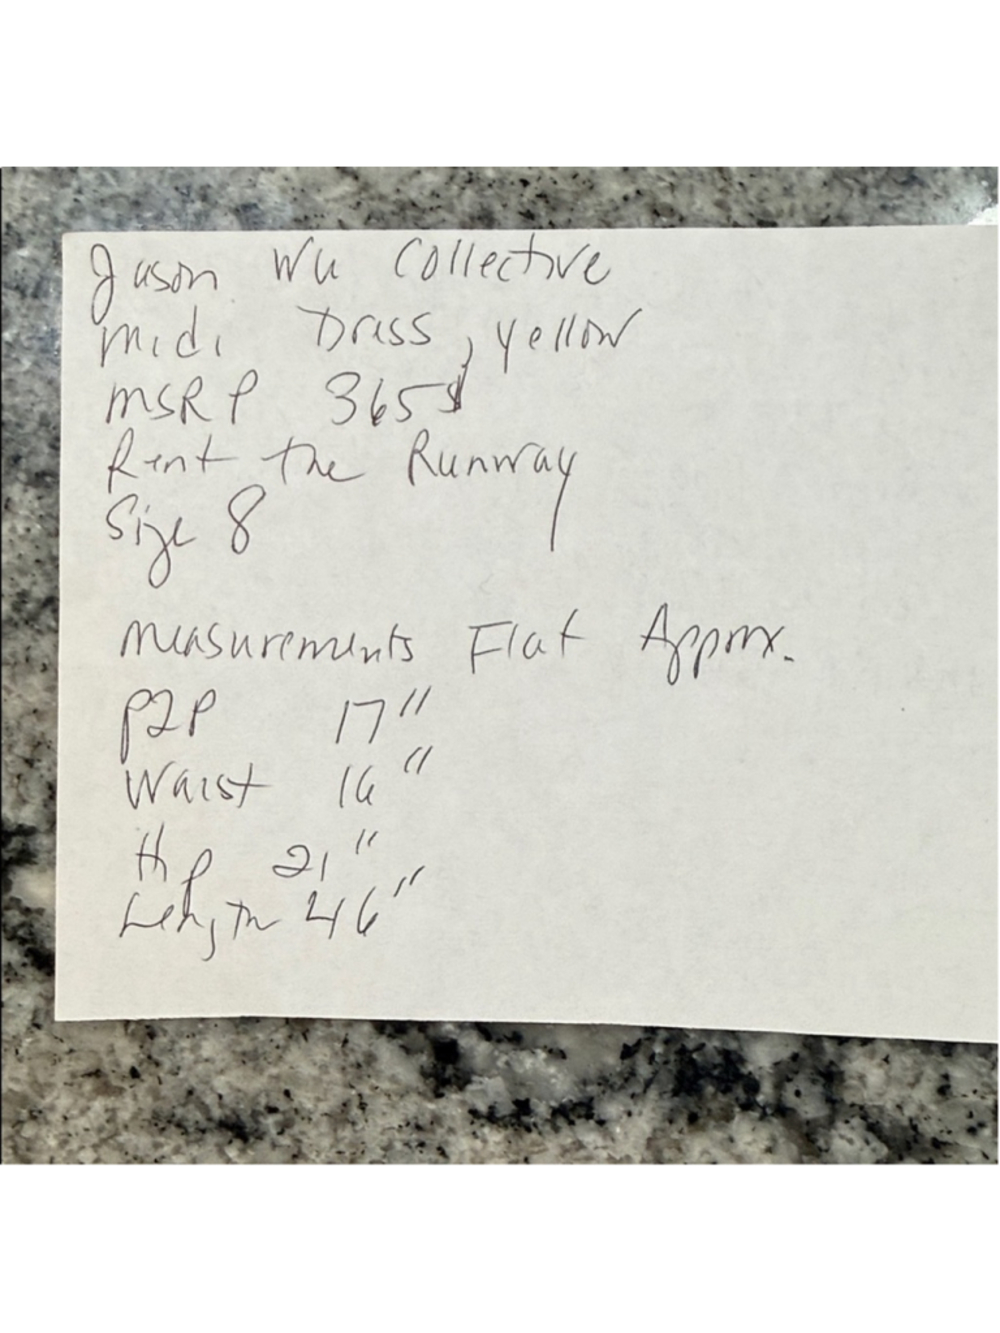 Jason Wu Collective
Midi Dress, yellow
MSRP 365$
Rent the Runway
Size 8
Measurements Flat Approx.
P2P 17"
Waist 16"
Hip 21"
Length 46"